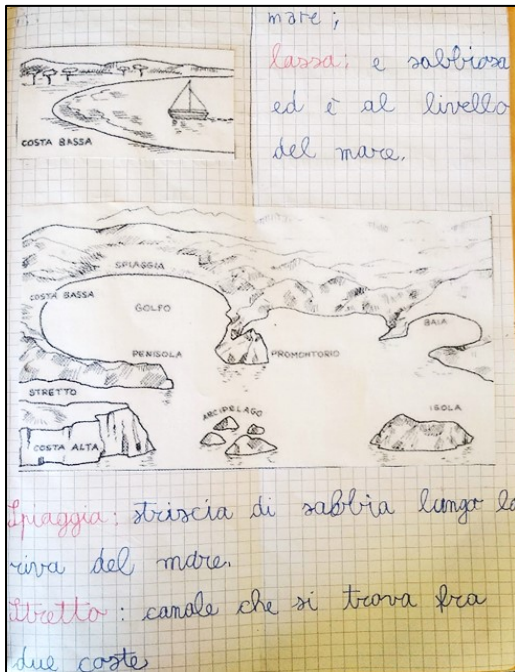 mare;
bassa: e sabbiosa
ed è al livello
del mare.
COSTA BASSA
SPIAGGIA
COSTA BASSA
GOLFO
BAIA
PENISOLA
PROMONTORIO
STRETTO
ARCIPELAGO
ISOLA
COSTA ALTA
Spiaggia: striscia di sabbia lungo la
riva del mare.
Stretto: canale che si trova fra
due coste